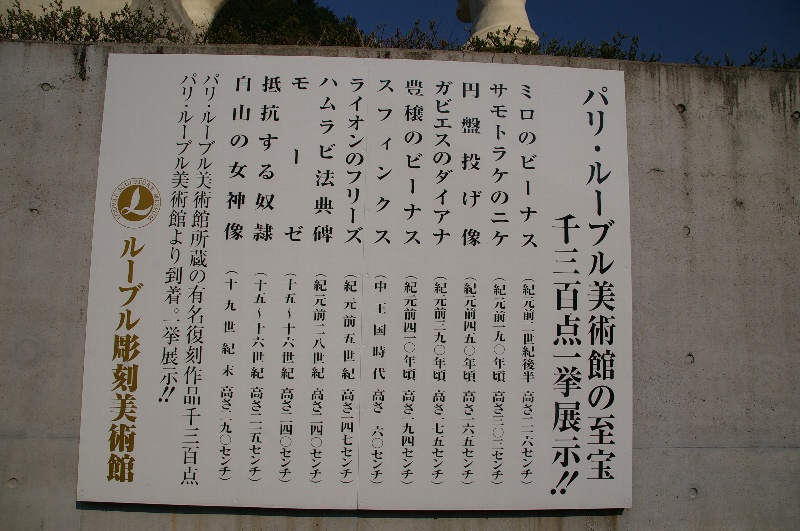 パリ・ルーブル美術館の至宝
千三百点一挙展示!!
ミロのビーナス（紀元前二世紀後半 高さ二二六センチ）
サモトラケのニケ（紀元前一九〇年頃 高さ三〇三センチ）
円盤投げ像（紀元前四五〇年頃 高さ一六五センチ）
ガビエスのダイアナ（紀元前三九〇年頃 高さ一七五センチ）
豊穣のビーナス（紀元前四一〇年頃 高さ一九四センチ）
スフィンクス（中王国時代 高さ一六〇センチ）
ライオンのフリーズ（紀元前五世紀 高さ一四七センチ）
ハムラビ法典碑（紀元前一八世紀 高さ二四〇センチ）
モーゼ（十五～十六世紀 高さ二四〇センチ）
抵抗する奴隷（十五～十六世紀 高さ二二五センチ）
白山の女神像（十九世紀末 高さ一九〇センチ）
パリ・ルーブル美術館所蔵の有名復刻作品千三百点
パリ・ルーブル美術館より到着。一挙展示!!
ルーブル彫刻美術館